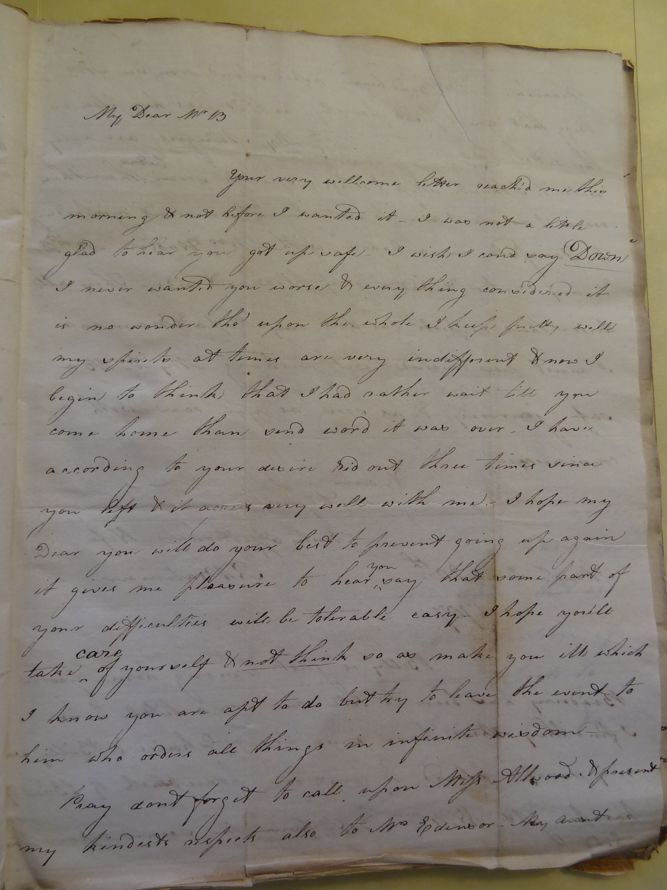 My Dear Mr B
Your very wellcome letter reach'd me this
morning & not before I wanted it - I was not a little
glad to hear you got up safe I wish I coud say Down
I never wanted you worse & every thing considered it
is no wonder tho' upon the whole I keep pretty well
my spirits at times are very indifferent & now I
begin to think that I had rather wait till you
come home than send word it was over. I have
according to your desire rid out three times since
you left & it agrees very well with me - I hope my
Dear you will do your best to prevent going up again
it gives me pleasure to hear you say that some part of
your difficulties will be tolerable easy - I hope you'll
take care of yourself & not think so as make you ill which
I know you are apt to do but try to leave the event to
him who orders all things in infinite wisdom
Pray dont forget to call upon Miss Allwood & present
my kindests respects also to Mrs My Aunt